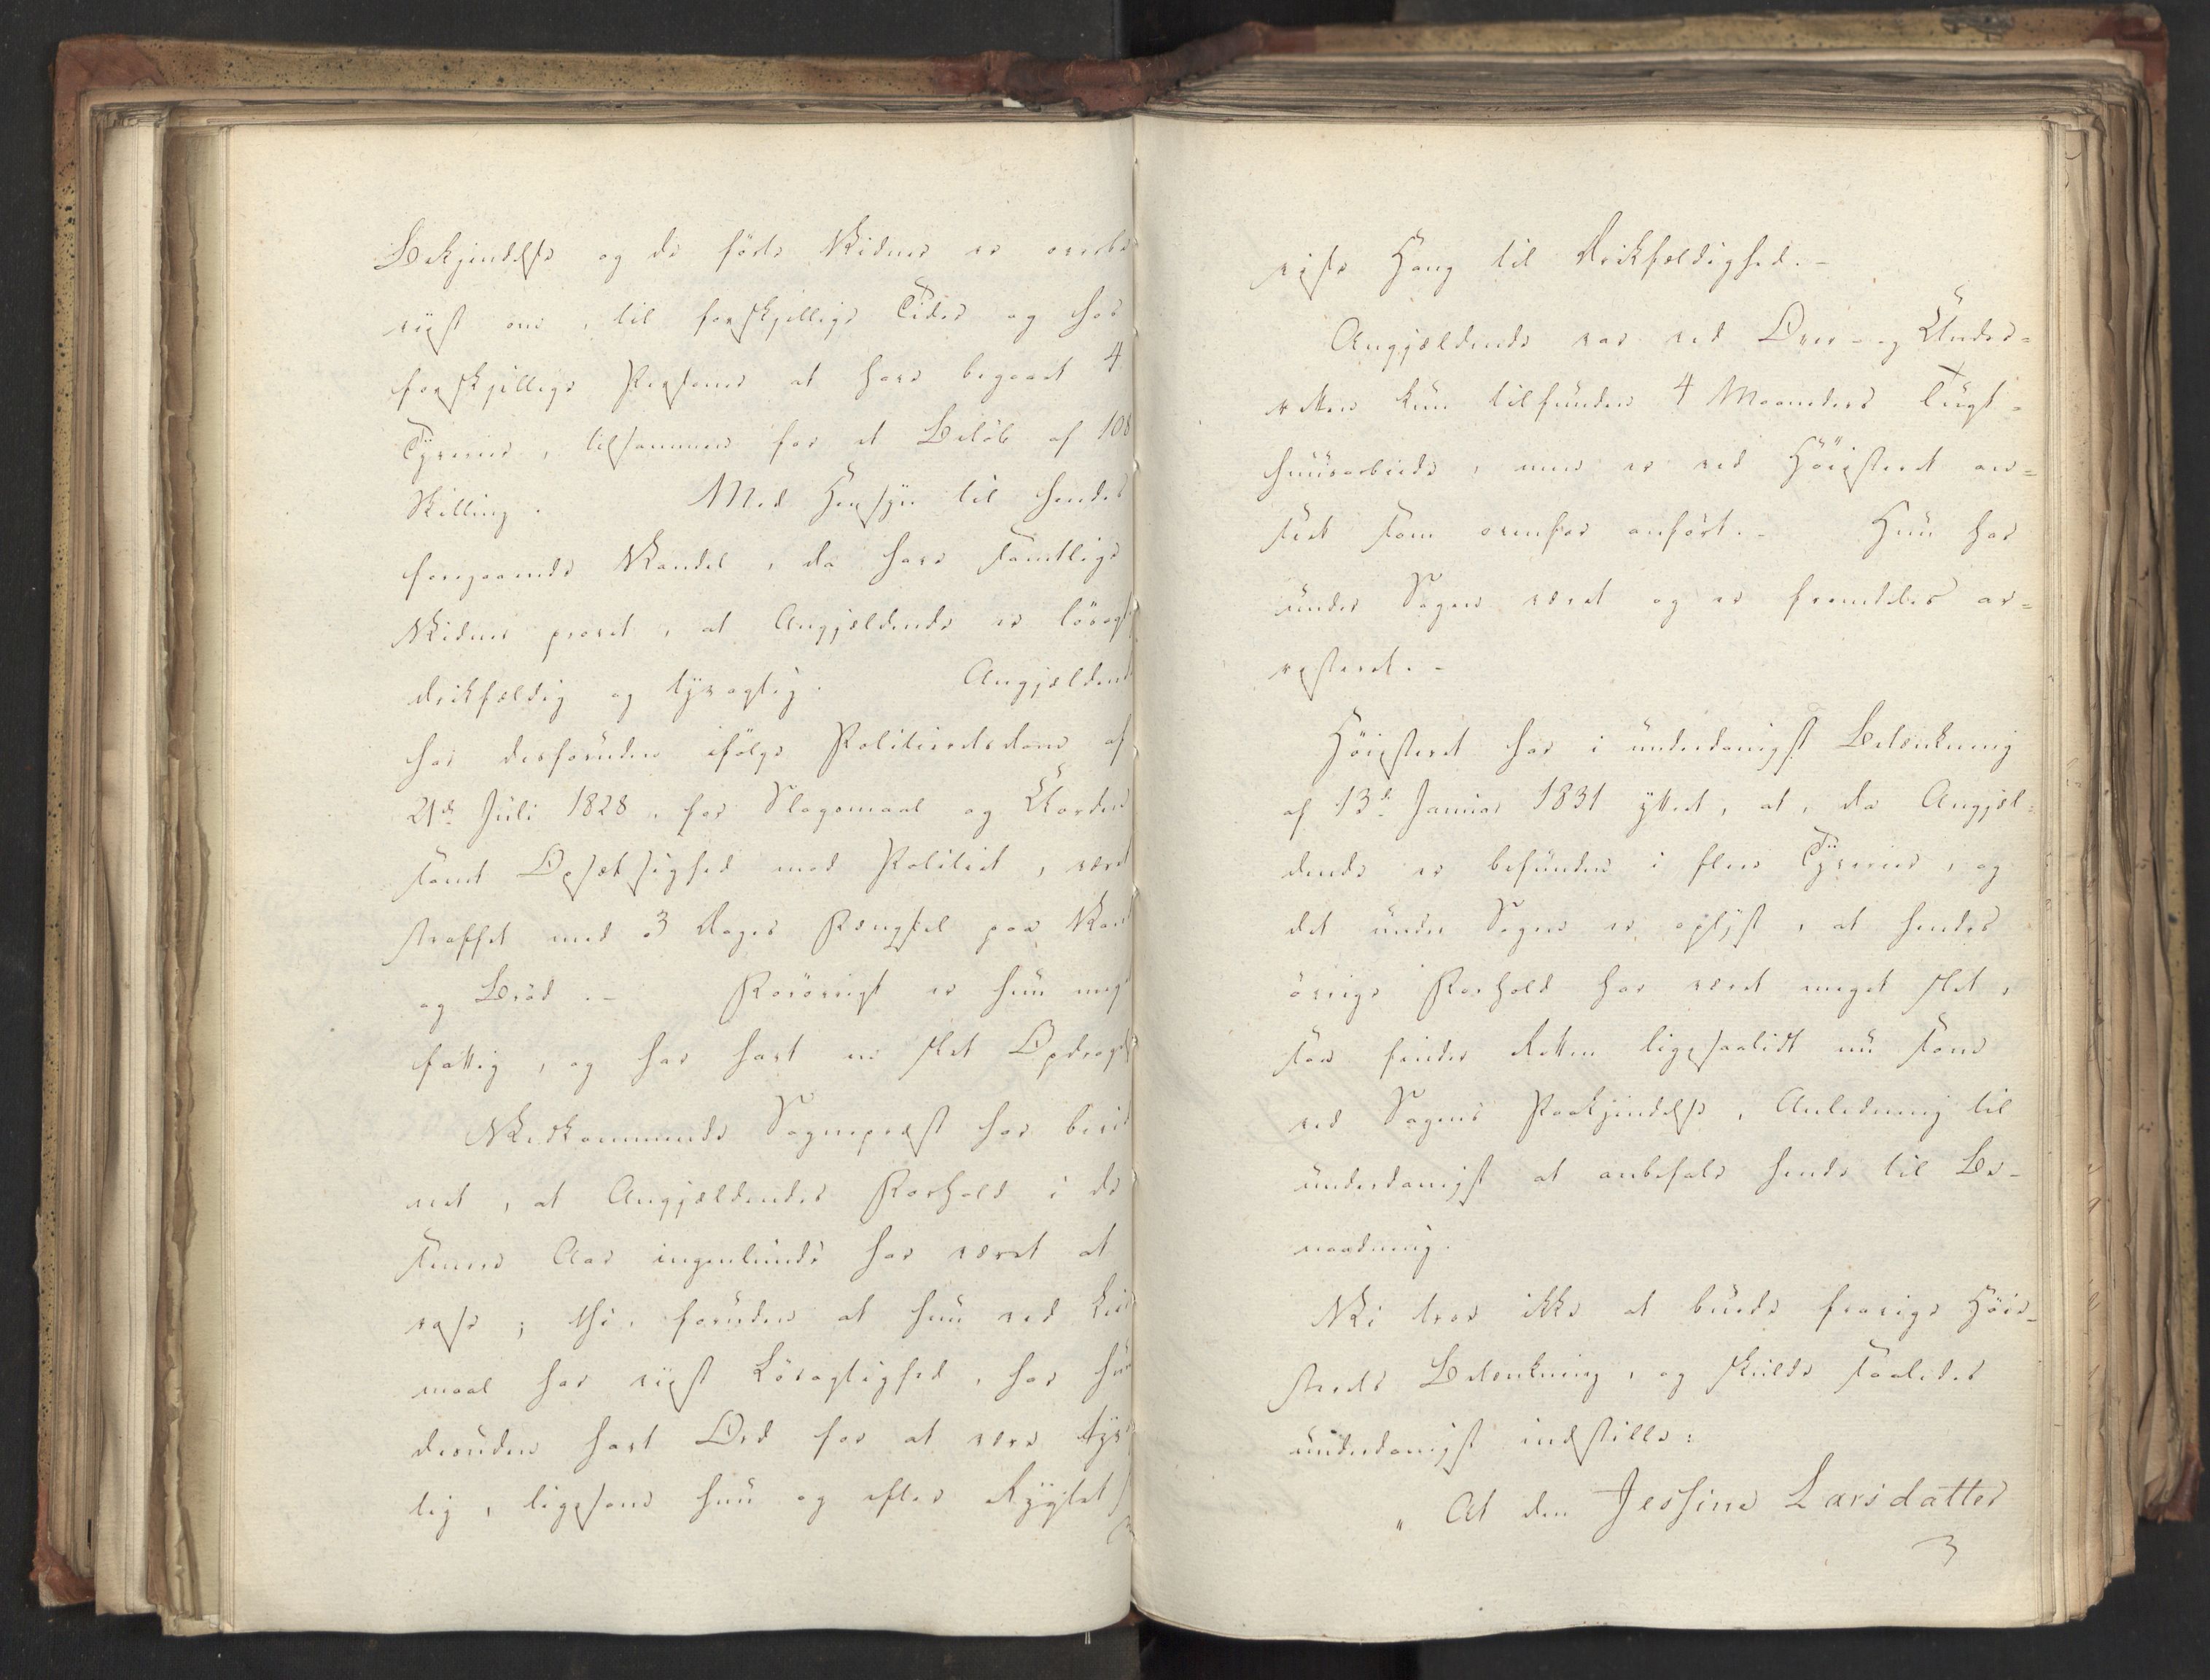 Bekjendelse og de förte Vidner er overbe
viist om, til forskjellige Tider og hos
forskjellige Personer at have begaaet 4
Tyverier, tilsammen for et Belöb af 108
Skilling. Med Hensyn til hendes
foregaaende Vandel, da have samtlige
Vidner provet, at Angjældende er lösagt
drikfældig og tyvagtig. Angjældend
har desforuden ifölge Politieretsdom af
21de Juli 1828, for Slagsmaal og Uorden
samt Opsætsighed mod Politiet, været
straffet med 3 Dages Fængsel paa Vand
og Bröd.- Forövrigt er hun meg
fattig, og har havt en slet Opdragel
Vedkommende Sognepræst har bevid
net, at Angjældendes Forhold i de
senere Aar ingenlunde har været at
rose; thi, foruden at hun ved Leier
maal har viist Lösagtighed, har hun
desuden havt Ord for at være tyv
tig, ligesom hun og efter Rygtet
viste Hang til Drikfældighed.-
Angjældende var ved Over- og Under-
retten kun tilfunden 4 Maaneders Tugt-
huusarbeide, men er ved Höiesteret an-
seet som ovenfor anfört.- Hun har
under Sagen været og er fremdeles ar-
resteret.-
Höiesteret har i underdanigst Betænkning
af 13de Januar 1831 yttret, at, da Angjæl-
dende er befunden i flere Tyverier, og
det under Sagen er oplyst, at hendes
övrige Forhold har været meget slet,
saa finder Retten ligesaalidt nu som
ved Sagens Paakjendelse, Anledning til
underdanigst at anbefale hende til Be-
naadning.
Vi troe ikke at burde fravige Höie-
sterets Betænkning, og skulde saaledes
underdanigst indstille:
„ At den Jessine Larsdatter